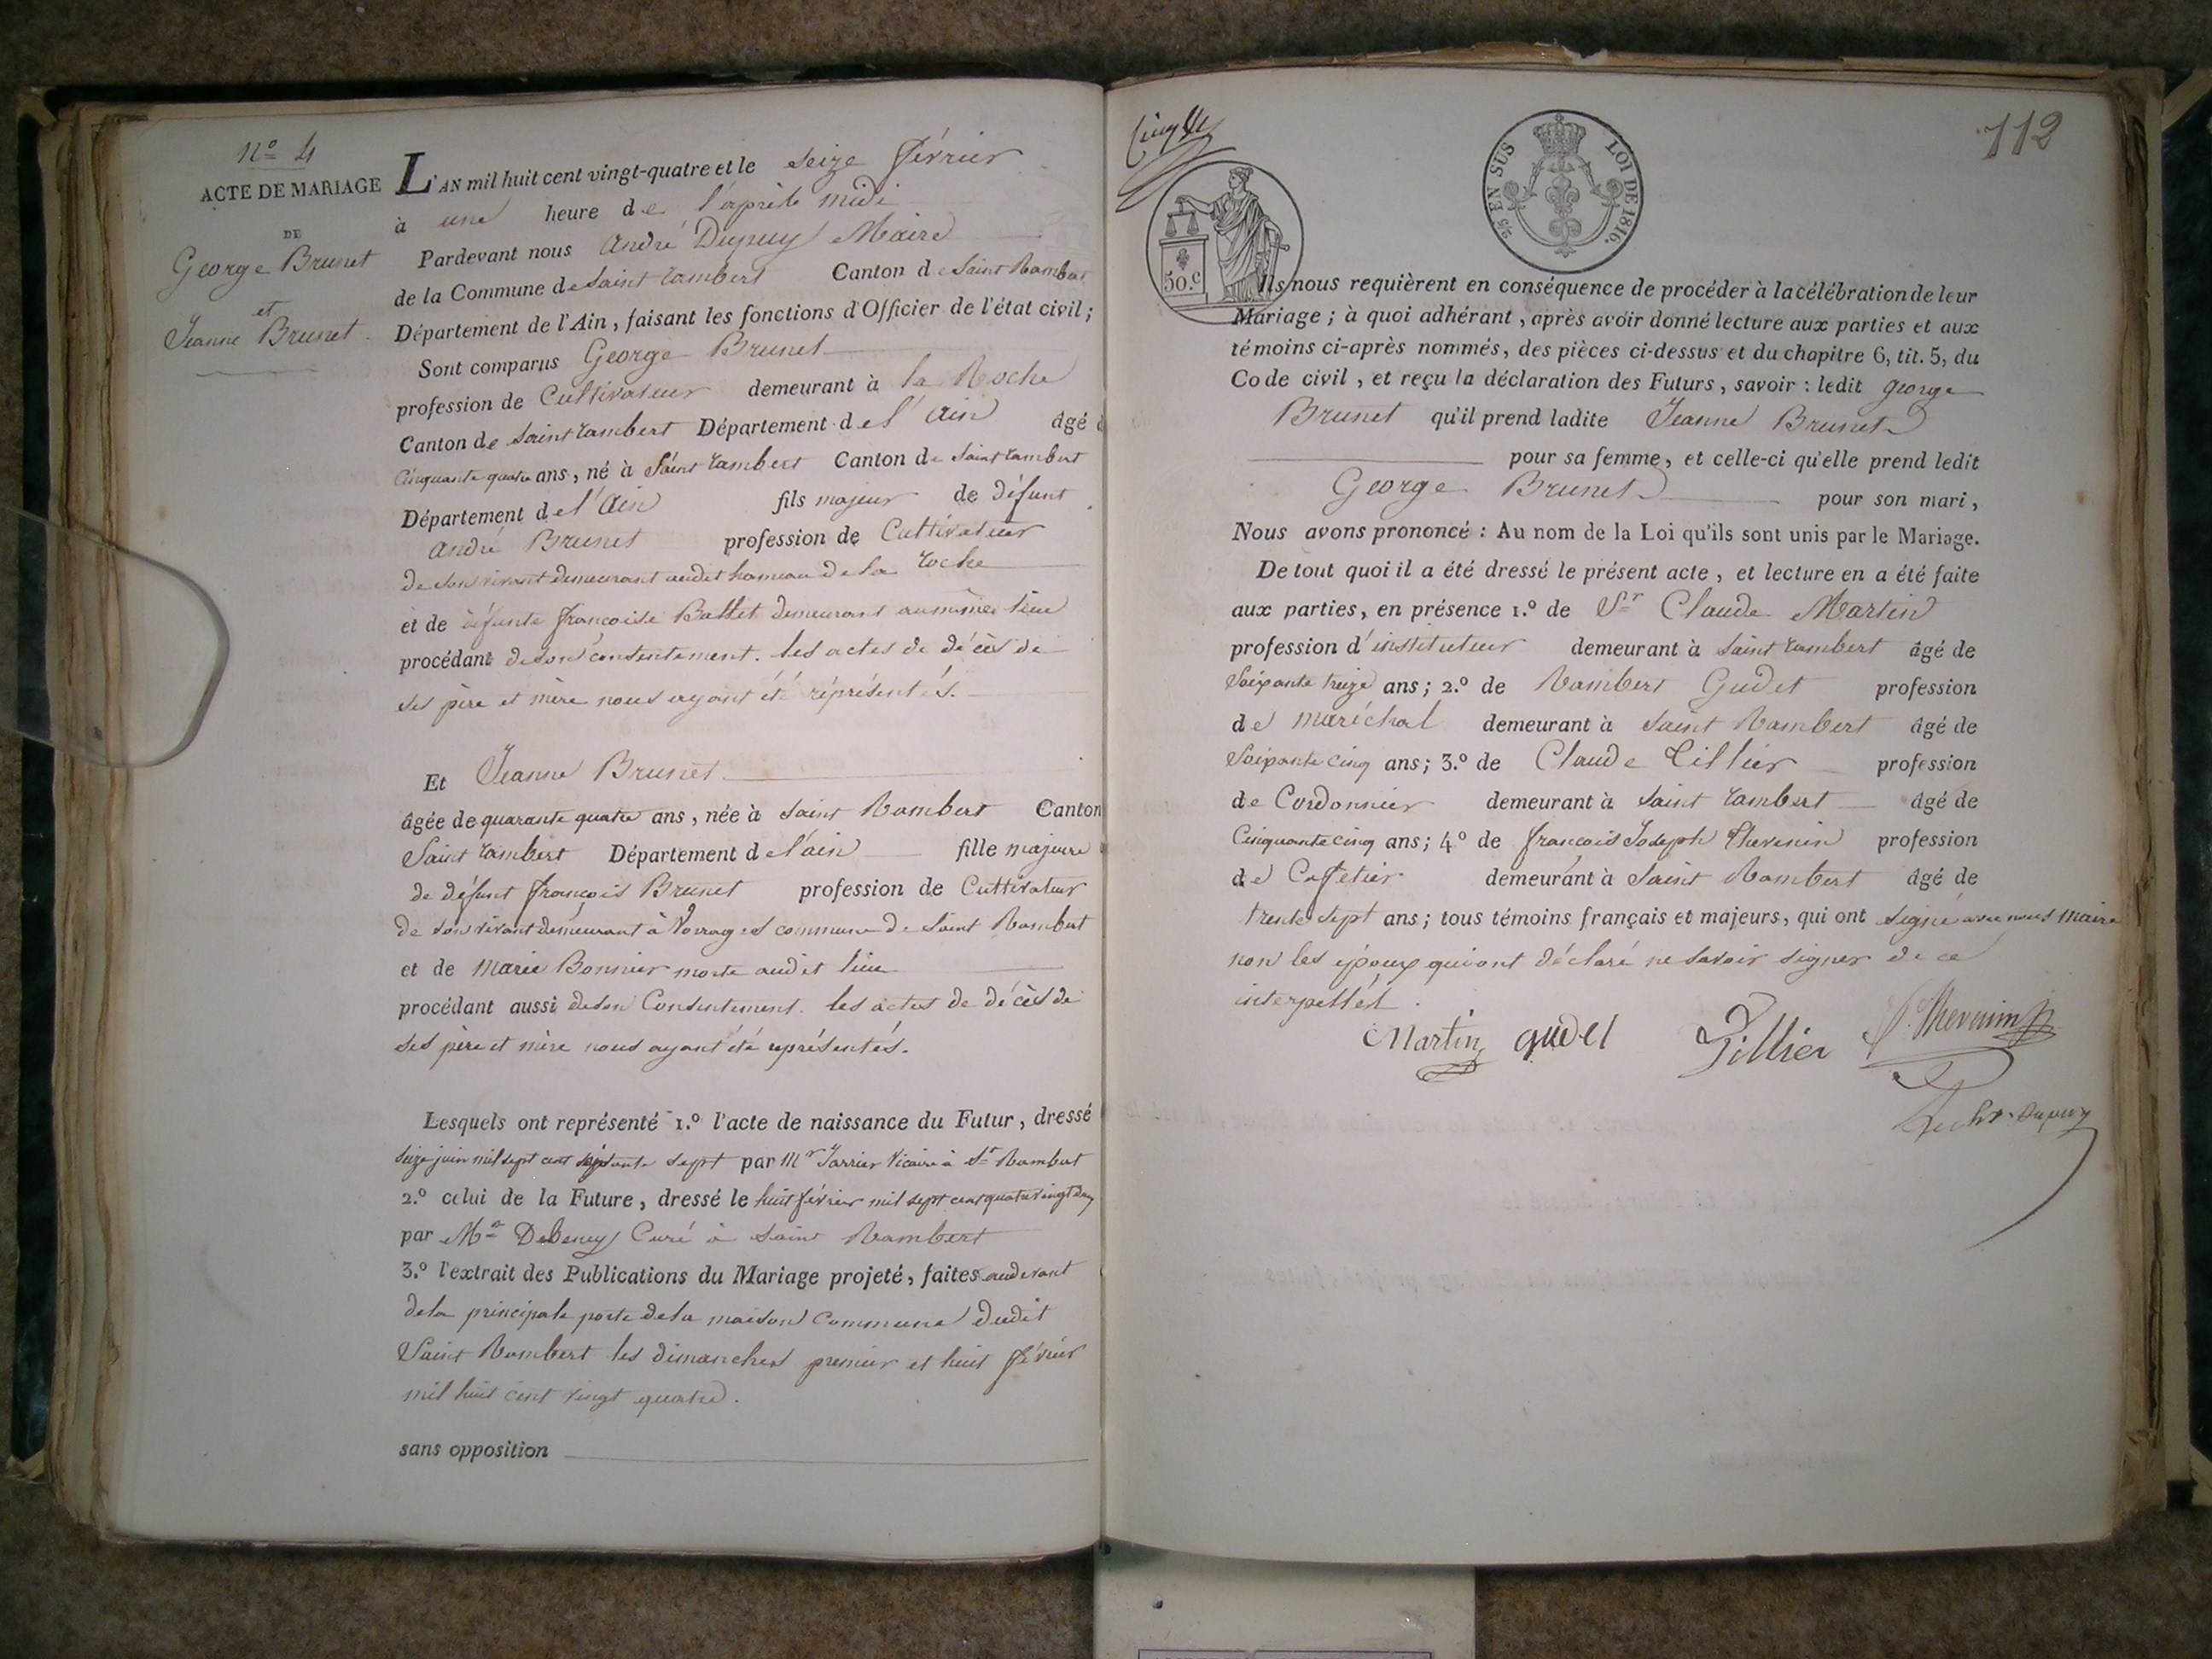 N.º 4
ACTE DE MARIAGE
DE
George Brunet
et
Jeanne Brunet.
L'AN mil huit cent vingt-quatre et le seize février
à une heure de l'après midi
Pardevant nous André Dupuy Maire
de la Commune de saint rambert Canton de Saint Rambert
Département de l'Ain, faisant les fonctions d'Officier de l'état civil;
Sont comparus George Brunet
profession de Cultivateur demeurant à la Roche
Canton de saint rambert Département de l'ain âgé d
Cinquante quatre ans, né à Saint rambert Canton de Saint rambert
Département de l'ain fils majeur de défunt
André Brunet profession de Cultivateur
de son vivant demeurant audit hameau de la roche
et de défunte françoise Ballet demeurant au même lieu
procédant de son consentement. les actes de décès de
ses père et mère nous ayant été réprésentés.
Et Jeanne Brunet
âgée de quarante quatre ans, née à saint Rambert Canton
Saint rambert Département de l'ain fille majeure
de défunt françois Brunet profession de Cultivateur
de son vivant demeurant à commune de Saint Rambert
et de Marie Bonnier morte audit lieu
procédant aussi de son Consentement. les actes de décès de
ses père et mère nous ayant été représentés.
Lesquels ont représenté 1.º l'acte de naissance du Futur, dressé
seize juin mil sept cent sept par Mr Jarrier Vicaire à St Rambert
2.º celui de la Future, dressé le huit février mil sept cent quatre vingt
par Mr Debeney Curé à Saint Rambert
3.º l'extrait des Publications du Mariage projeté, faites audevant
de la principale porte de la maison Commune dudit
Saint Rambert les dimanches premier et huit février
mil huit cent vingt quatre.
sans opposition
112
EN SUS LOI DE 1816.
50.C
Ils nous requièrent en conséquence de procéder à la célébration de leur
Mariage; à quoi adhérant, après avoir donné lecture aux parties et aux
témoins ci-après nommés, des pièces ci-dessus et du chapitre 6, tit. 5, du
Code civil, et reçu la déclaration des Futurs, savoir: ledit George
Brunet qu'il prend ladite Jeanne Brunet
pour sa femme, et celle-ci qu'elle prend ledit
George Brunet pour son mari,
Nous avons prononcé: Au nom de la Loi qu'ils sont unis par le Mariage.
De tout quoi il a été dressé le présent acte, et lecture en a été faite
aux parties, en présence 1.º de Sr Claude Martin
profession d'instituteur demeurant à saint rambert âgé de
Soixante treize ans; 2.º de Rambert Gudet profession
de maréchal demeurant à saint Rambert âgé de
Soixante cinq ans; 3.º de Claude Tillier profession
de Cordonnier demeurant à saint rambert âgé de
Cinquante cinq ans; 4.º de françois Joseph Thevenin profession
de Cafetier demeurant à Saint Rambert âgé de
trente sept ans; tous témoins français et majeurs, qui ont signé avec nous maire
non les époux qui ont déclaré ne savoir signer de ce
interpellés.
Martin gudet Tillier Thevenin
Dupuy